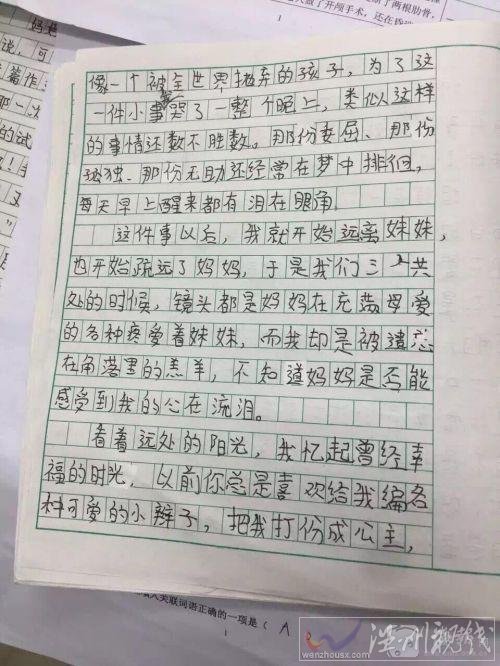 断了两根肋骨,
做了开颅手术,还在昏
说,可
篇作
那一次
的试
像一个被全世界抛弃的孩子,为了这
一件小事哭了一整个晚上,类似这样
的事情还数不胜数。那份委屈、那份
孤独、那份无助还经常在梦中排徊,
每天早上醒来都有泪在眼角。
这件事以后,我就开始远离妹妹,
也开始疏远了妈妈,于是我们三人共
处的时候,镜头都是妈妈在充满母爱
的各种疼爱着妹妹,而我却是被遗忘
在角落里的羔羊,不知道妈妈是否能
感受到我的心在流泪。
看着远处的阳光,我忆起曾经幸
福的时光,以前你总是喜欢给我编各
种可爱的小辫子,把我打份成公主,
入关联词语正确的一项是( A
1
温州视线
wenzhousx.com